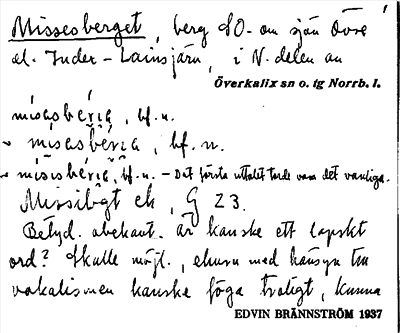 Missesberget, berg SO. om sjön Övre
el. Inder-Lainsjärv, i N. delen av
Överkalix sn o. tg Norrb. l.
misesbériɑ, bf. n.
misesbériɑ, bf. n.
misisbériɑ, bf. n. – Det första uttalet torde vara det vanliga.
Missibgt ek, G 23.
Betyd. obekant. Är kanske ett lapskt
ord? Skulle möjl., ehuru med hänsyn till
vokalismen kanske föga troligt, kunna
EDVIN BRÄNNSTRÖM 1937